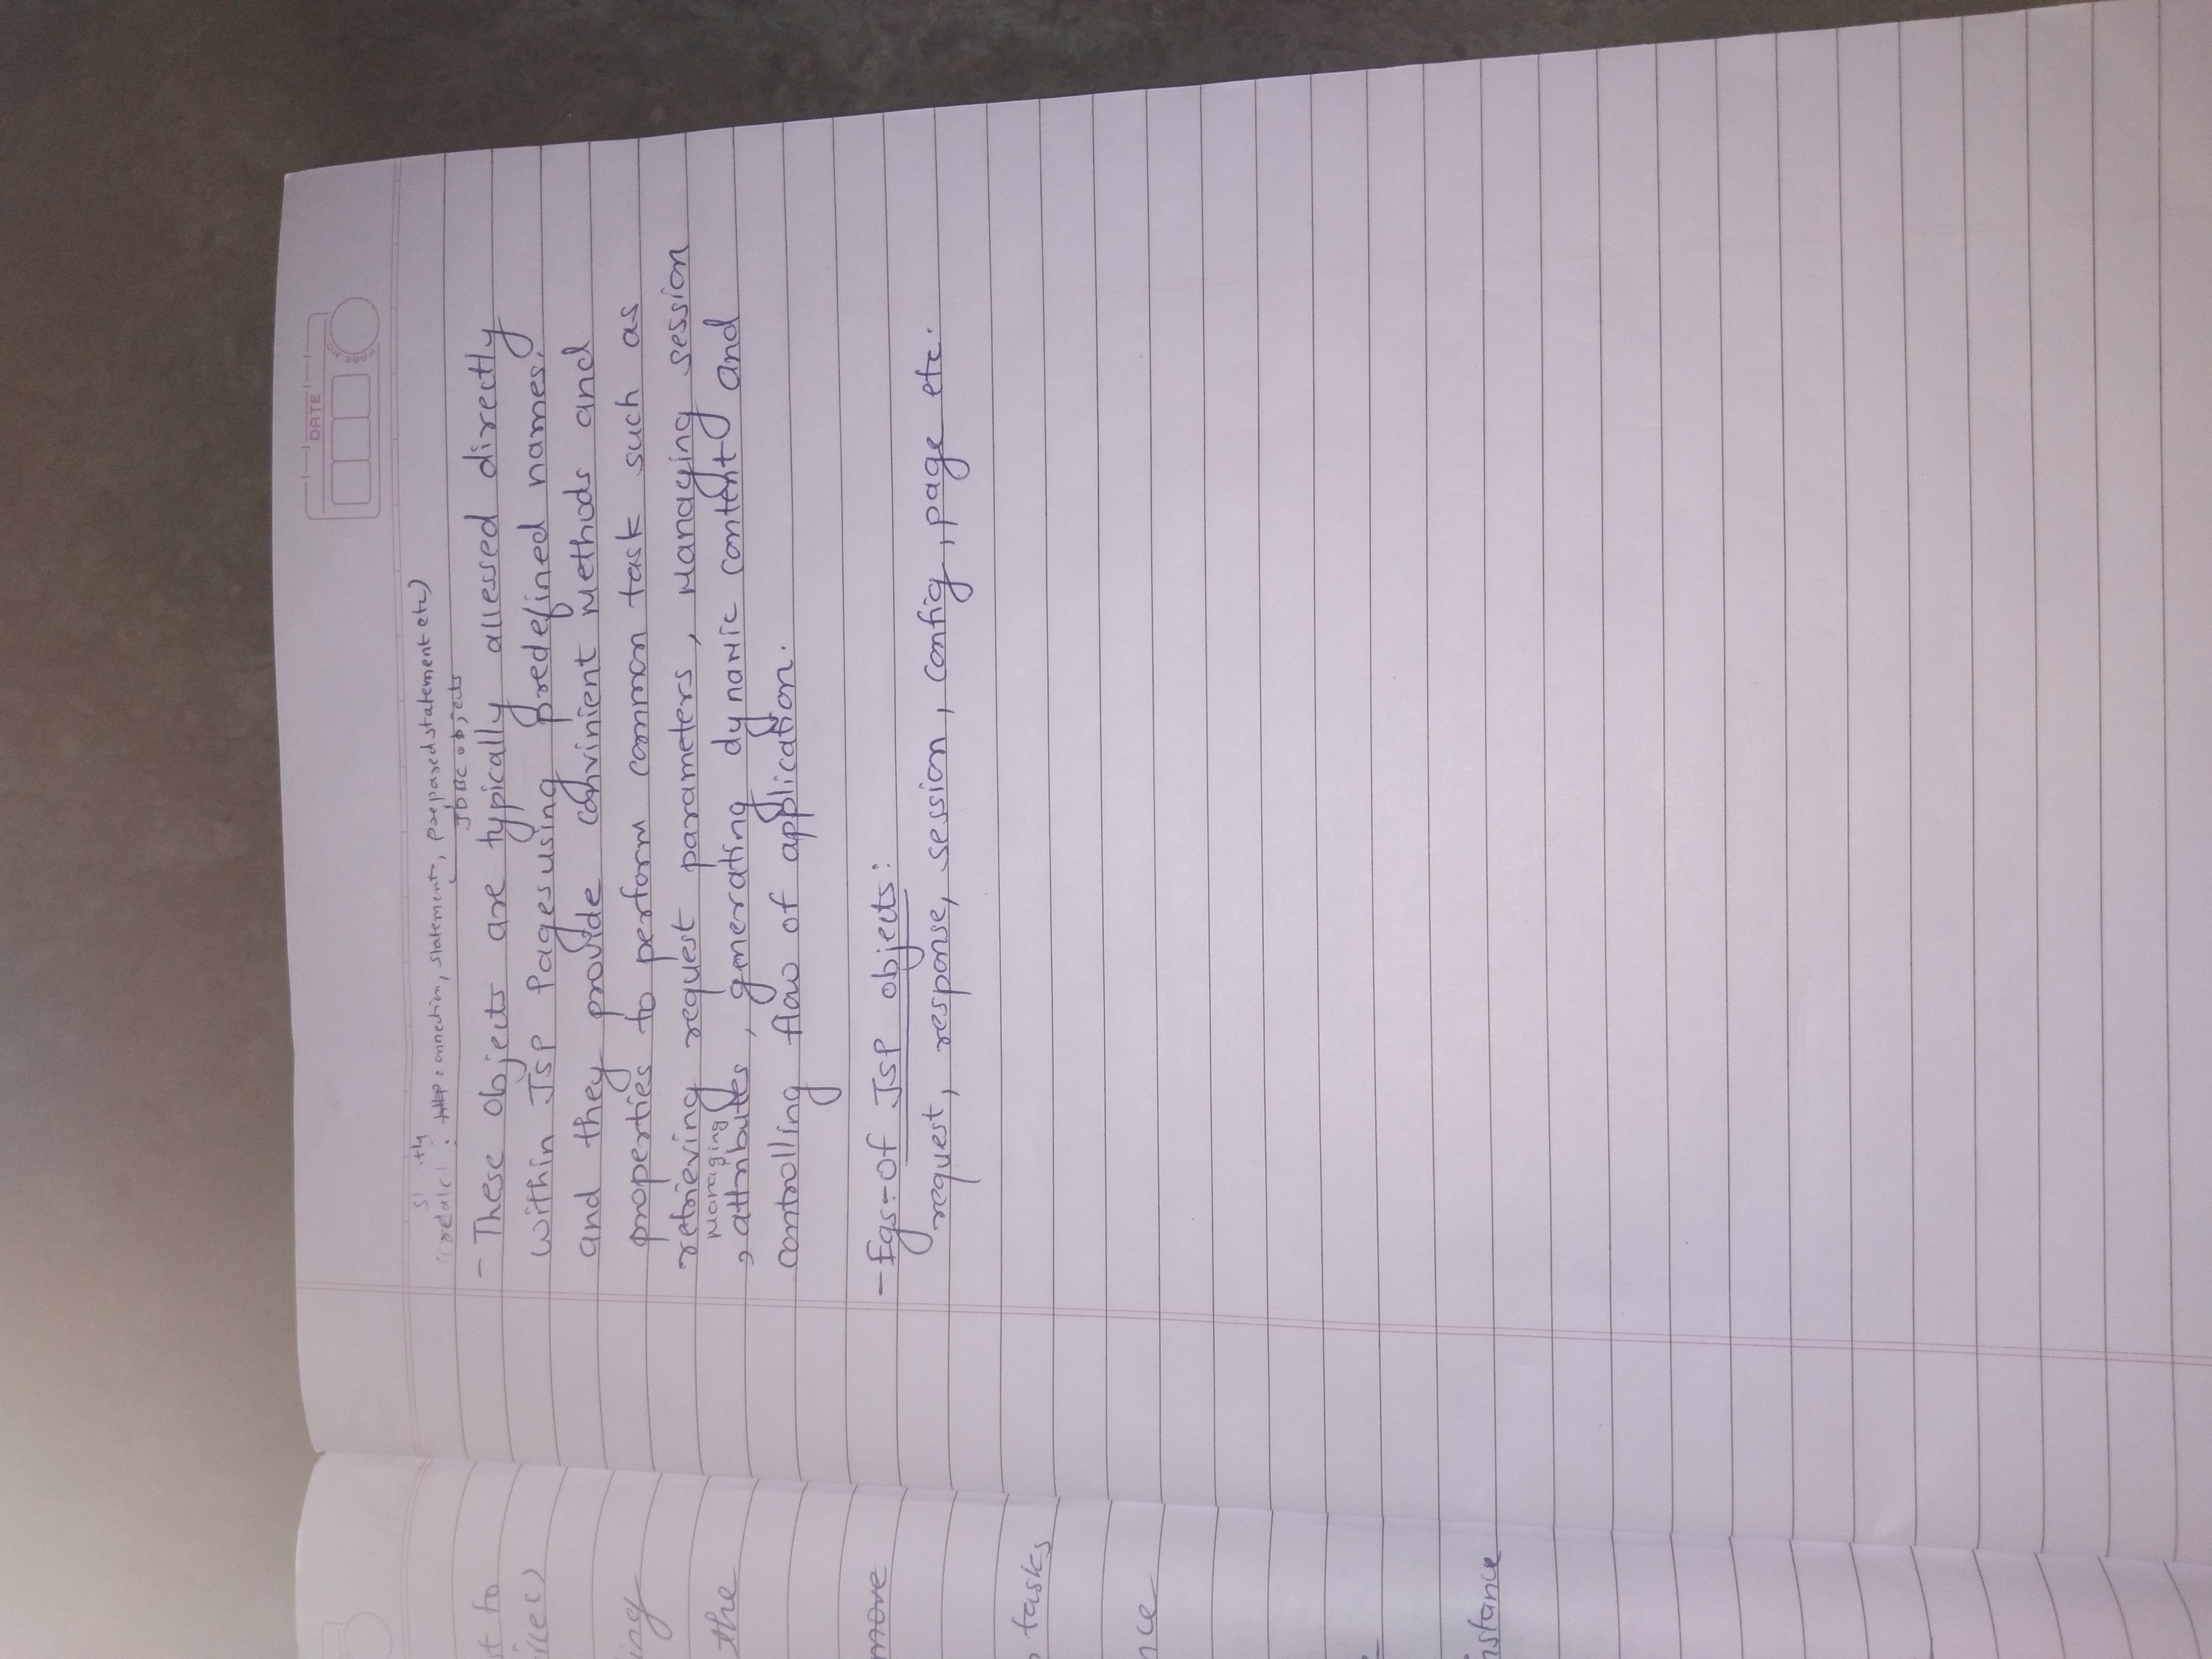 DATE
PAGE NO
connection, statement, preparedstatement etc)
JDBC objects
- These objects are typically accessed directly
within JSP Pages using predefined names.
and they provide convinient methods and
properties to perform common task such as
retrieving request parameters, managing session
managing
, attributes, generating dynamic content and
controlling flow of application.
- Egs:- of JSP objects:
request, response, session, config, page etc.
st to
ing
the
more
tasks
nce
nstance